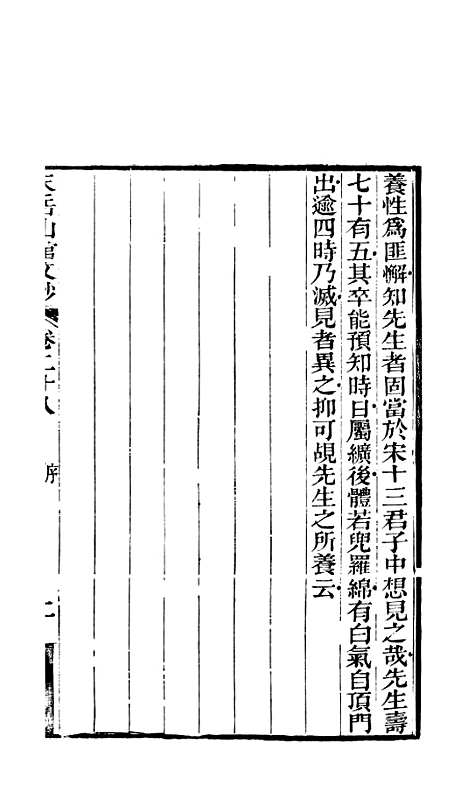 養性爲匪懈知先生者固當於宋十三君子中想見之哉先生壽
七十有五其卒能預知時日屬纊後體若兜羅綿有白氣自頂門
出逾四時乃滅見者異之抑可覘先生之所養云
天岳山館文鈔
卷二十八
序